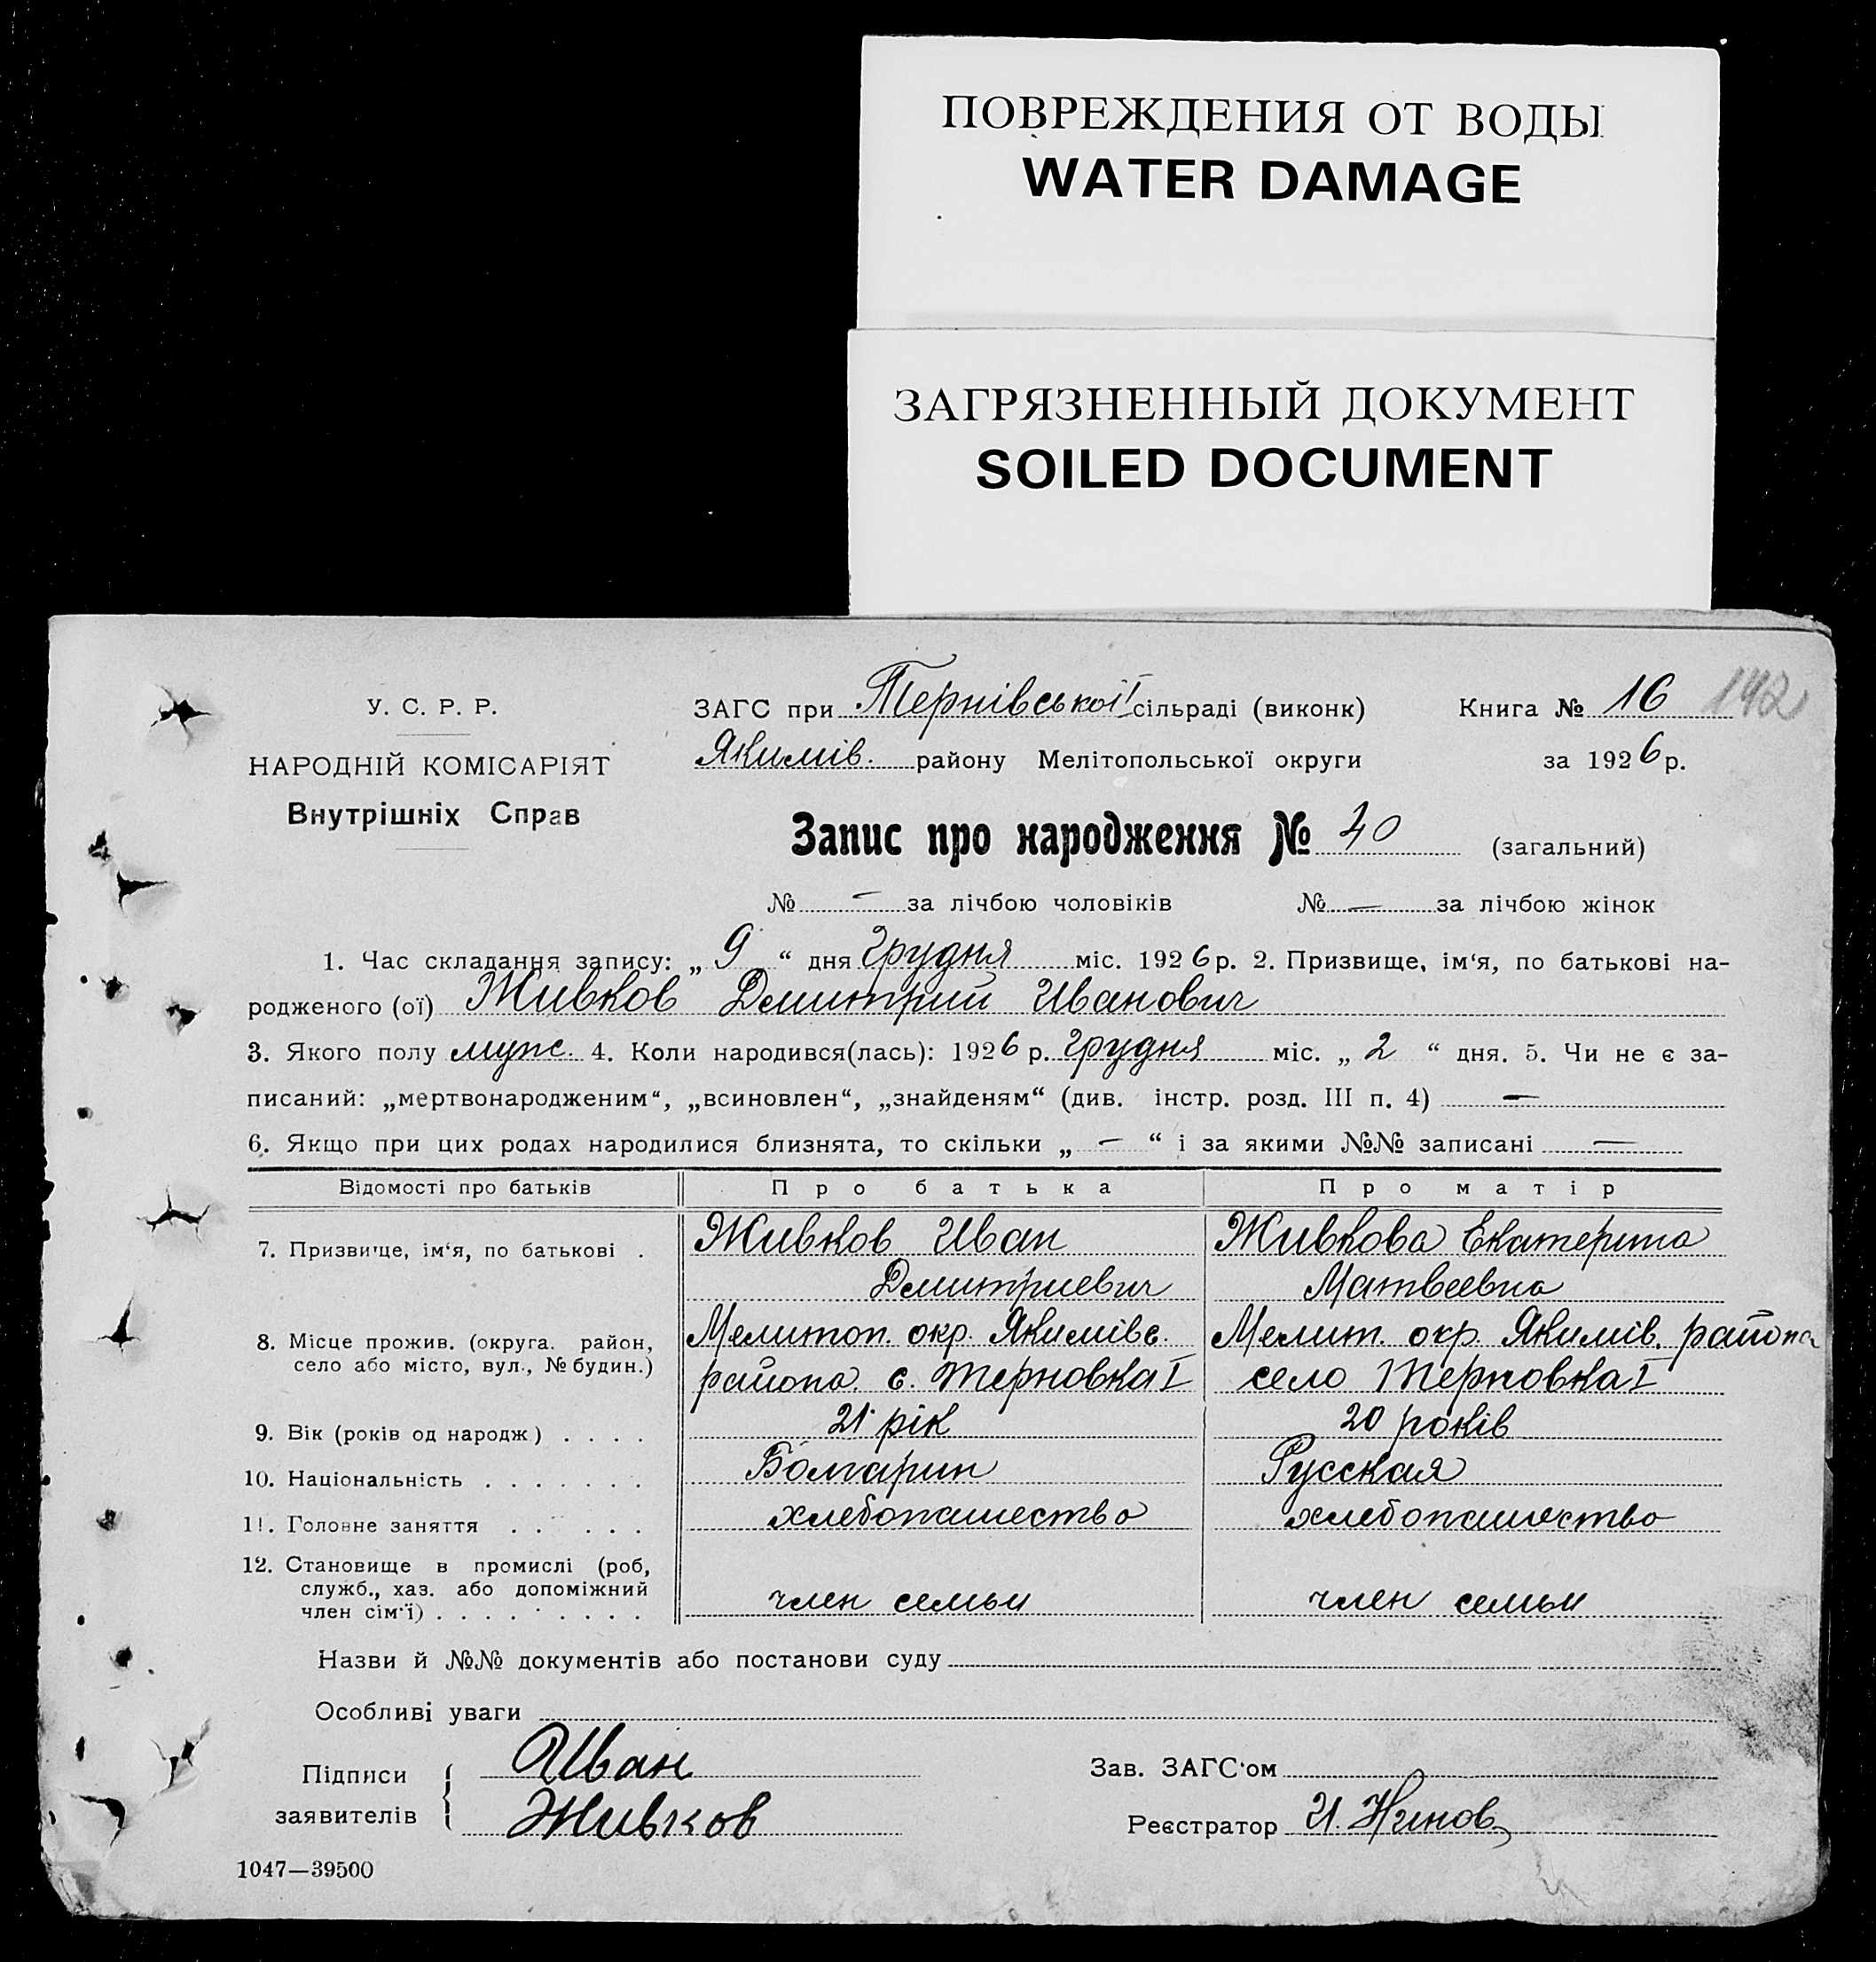 ПОВРЕЖДЕНИЯ ОТ ВОДЫ
WATER DAMAGE
ЗАГРЯЗНЕННЫЙ ДОКУМЕНТ
SOILED DOCUMENT
У. С. Р. Р.
НАРОДНІЙ КОМІСАРІЯТ
Внутрішніх Справ
ЗАГС при Тернівської I сільраді (виконк) Книга № 16 142
Якимів. району Мелітопольської округи за 1926 р.
Запис про народження № 40 (загальний)
№ — за лічбою чоловіків № — за лічбою жінок
1. Час складання запису: „ 9 “ дня Грудня міс. 1926 р. 2. Призвище, ім‘я, по батькові на-
родженого (ої) Живков Дмитрий Иванович
3. Якого полу муж. 4. Коли народився(лась): 1926 р. Грудня міс. „ 2 “ дня. 5. Чи не є за-
писаний: „мертвонародженим“, „всиновлен“, „знайденям“ (див. інстр. розд. III п. 4) —
6. Якщо при цих родах народилися близнята, то скільки „ — “ і за якими №№ записані —
Відомості про батьків Про батька Про матір
7. Призвище, ім‘я, по батькові . Живков Иван Живкова Екатерина
Дмитриевич Матвеевна
8. Місце прожив. (округа. район, Мелитоп. окр. Якимівс. Мелит. окр. Якимів. района
село або місто, вул., № будин.) района с. Терновка I село Терновка I
9. Вік (років од народж) . . . . 21 рік 20 років
10. Національність . . . . . . . Болгарин Русская
11. Головне заняття . . . . . хлебопашество хлебопашество
12. Становище в промислі (роб,
служб., хаз. або допоміжний
член сім‘ї) . . . . . . . . . член семьи член семьи
Назви й №№ документів або постанови суду
Особливі уваги
Підписи Иван Зав. ЗАГС‘ом
заявителів Живков Реєстратор И. Нинов
1047—39500